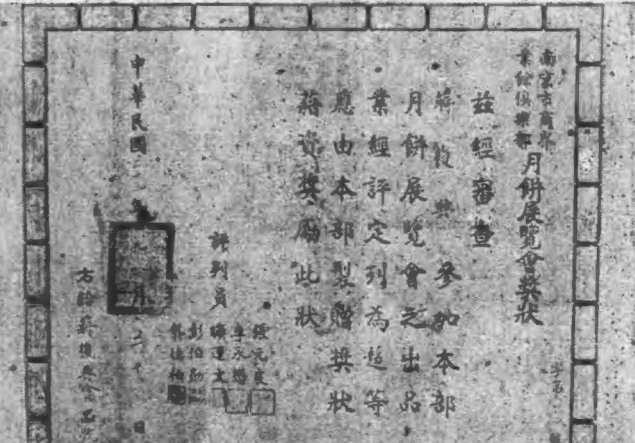 南京市商界
業餘俱樂部
月餅展覽會獎狀
字第
茲經審查
蔣復興參加本部
月餅展覽會之出品
業經評定列為超等
應由本部製贈獎狀
藉資獎勵此狀
評判員
張元良
李永
陳運文
彭伯勛
中華民國二年月二日
右給蔣復興